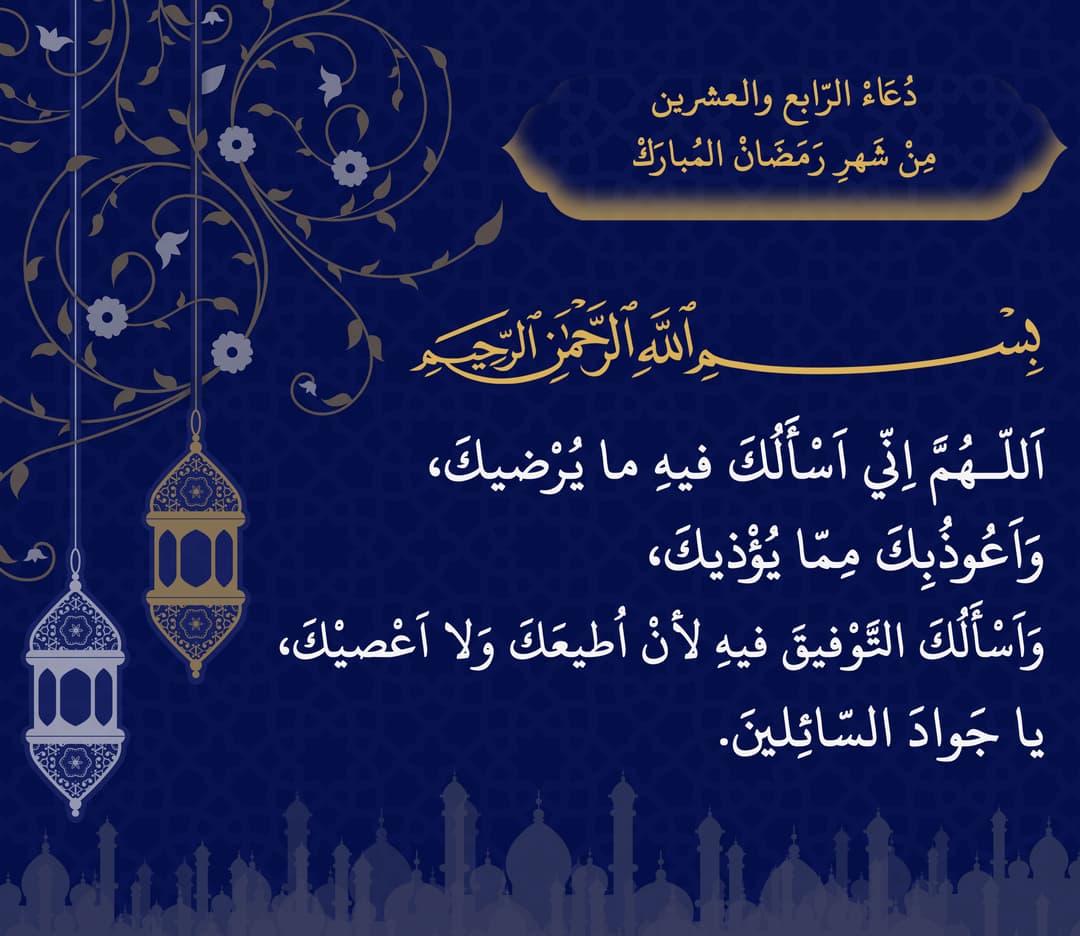 دُعَاءْ الرّابع والعشرين
مِنْ شَهرِ رَمَضَانْ المُبارَكْ
بِسْمِ اللَّهِ الرَّحْمَٰنِ الرَّحِيمِ
اَللّـهُمَّ اِنّي اَسْأَلُكَ فيهِ ما يُرْضيكَ،
وَاَعُوذُبِكَ مِمّا يُؤْذيكَ،
وَاَسْأَلُكَ التَّوْفيقَ فيهِ لأنْ اُطيعَكَ وَلا اَعْصيْكَ،
يا جَوادَ السّائِلينَ.